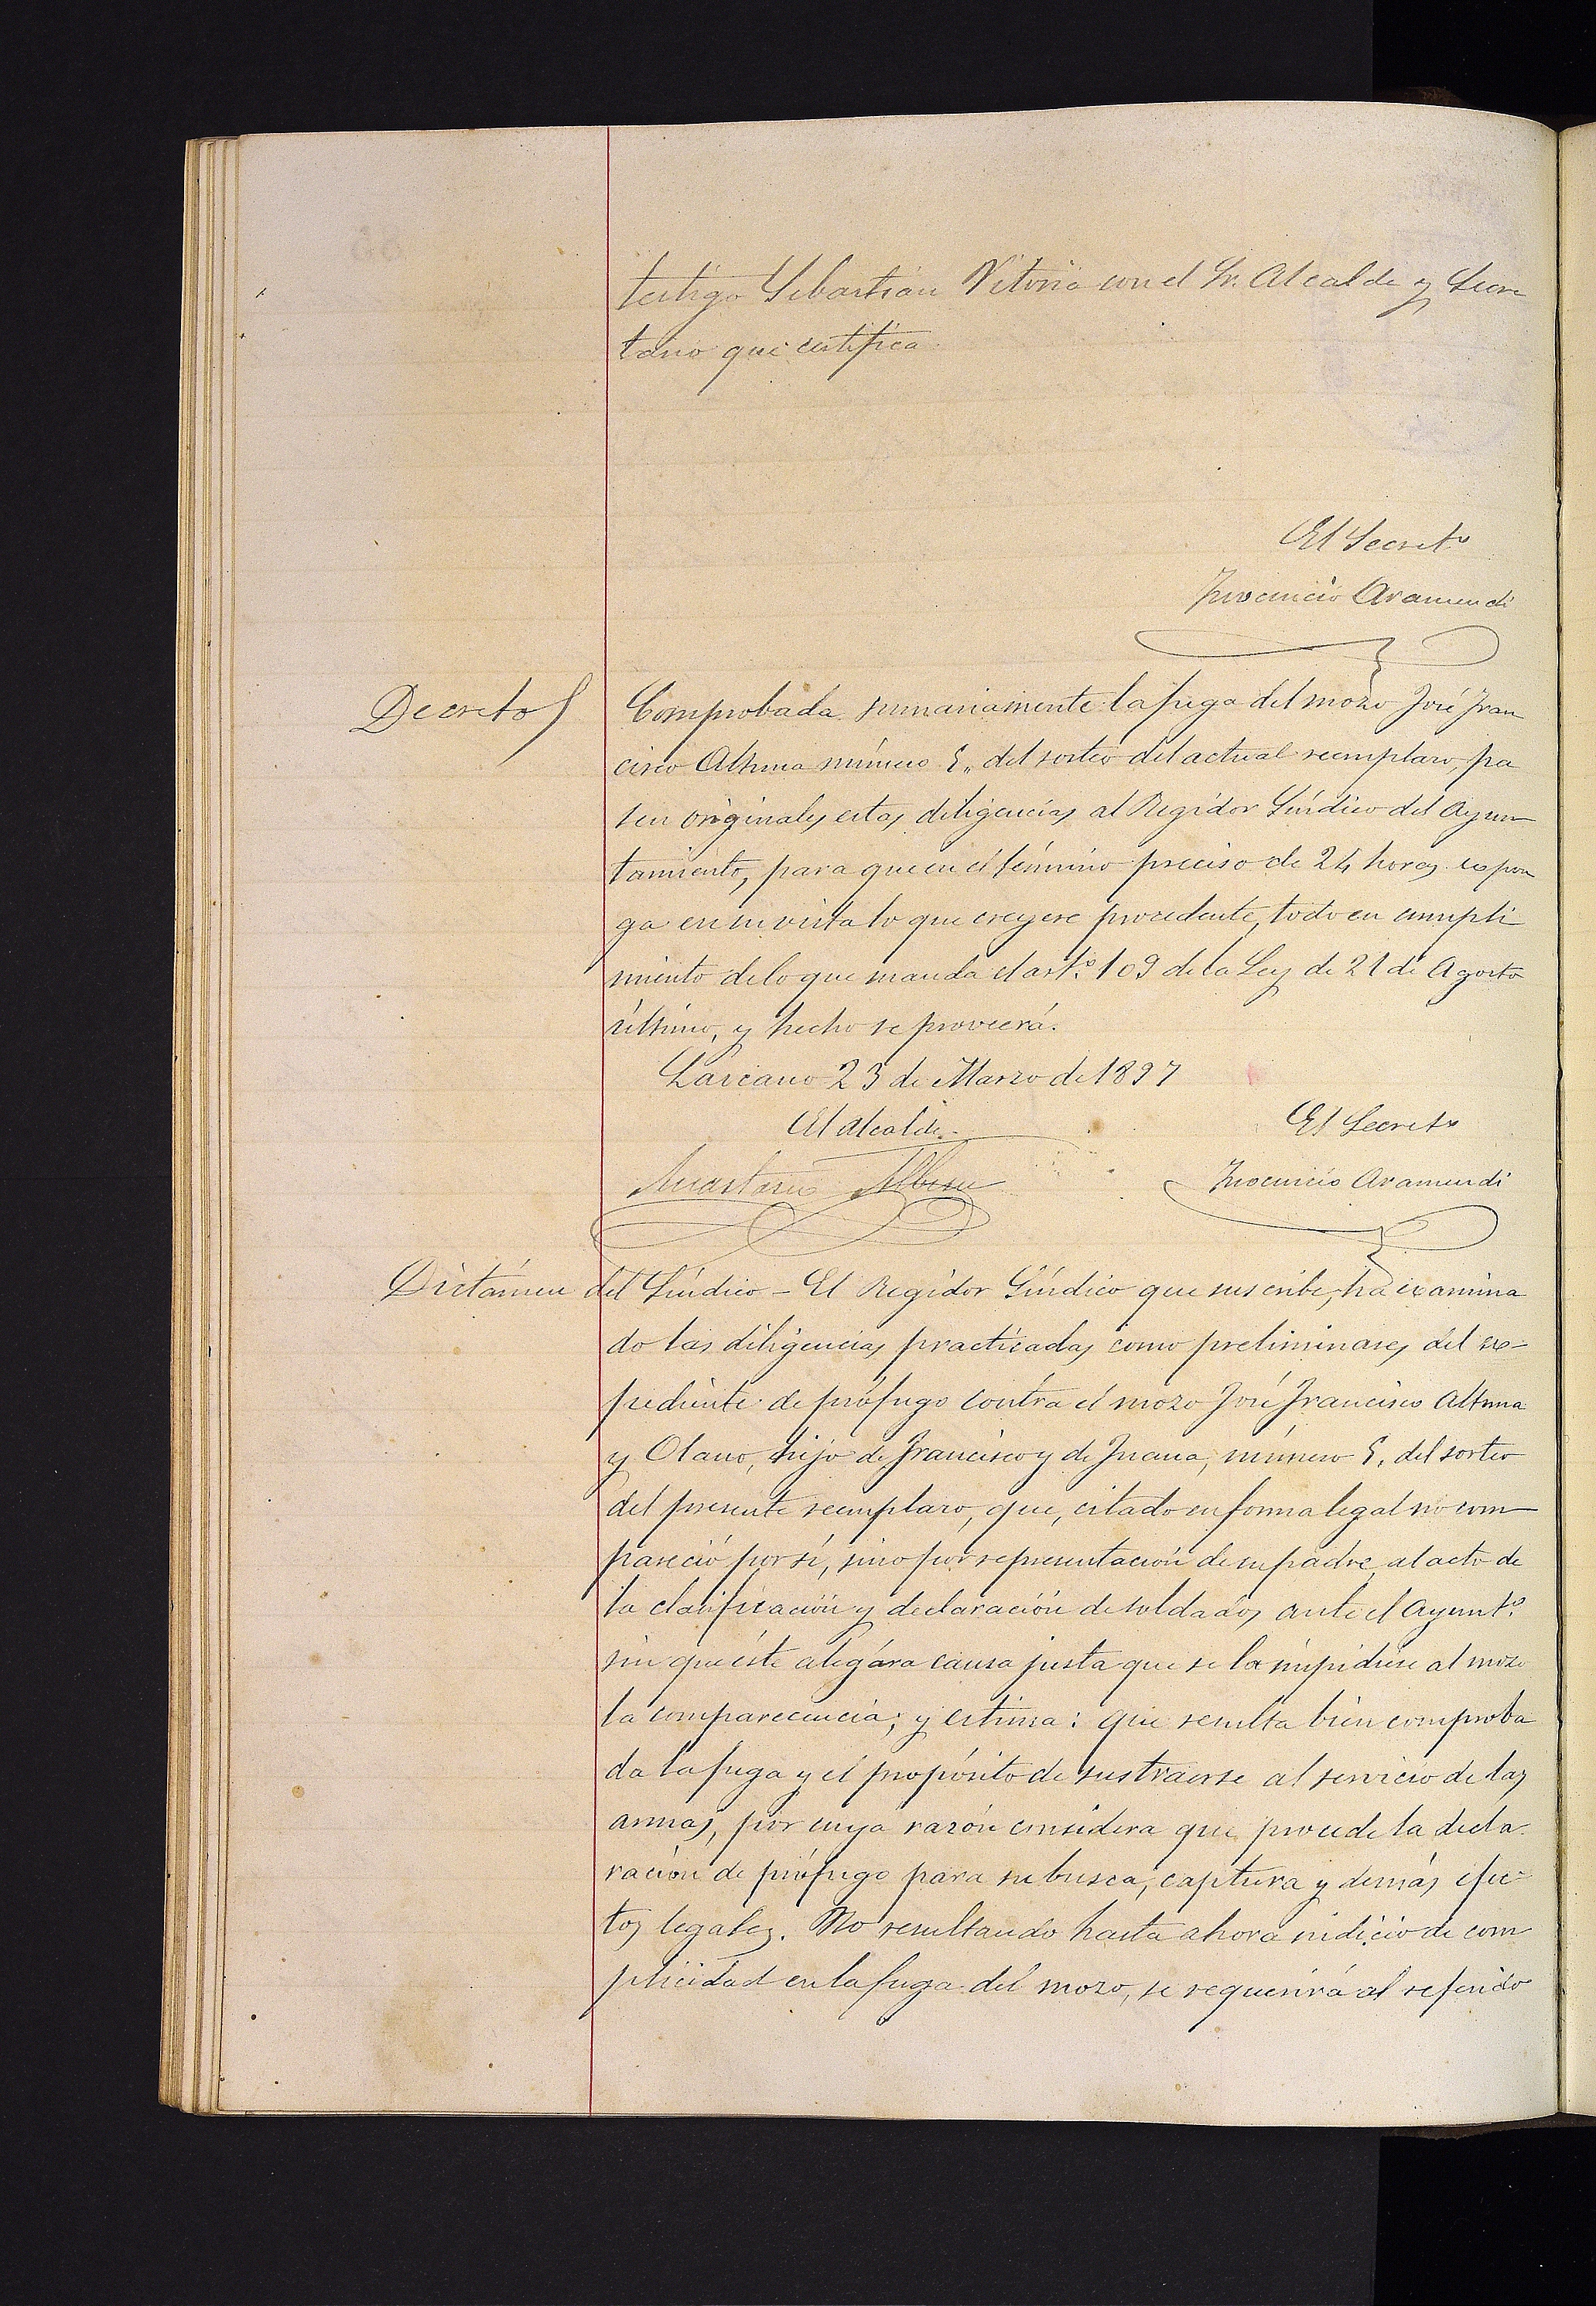 testigo Sebastián Vitoria con el Sr. Alcalde y Secre
tario que certifica.
El Secret.º
Inocencio Aramendi
Decreto
Comprobada sumariamente la fuga del mozo José Fran
cisco Altuna número 5,, del sorteo del actual reemplazo, pa
sen originales estas diligencias al Regidor Síndico del Ayun
tamiento, para que en el término preciso de 24 horas expon
ga en su vista lo que creyere procedente, todo en cumpli
miento de lo que manda el art.º 109 de la Ley de 21 de Agosto
último, y hecho se proveerá.
Lazcano 23 de Marzo de 1897
El Alcalde.
El Secret.º
Anastasio Albisu
Inocencio Aramendi
Dictámen del Síndico - El Regidor Síndico que suscribe, ha examina
do las diligencias practicadas como preliminares del ex-
pediente de prófugo contra el mozo José Francisco Altuna
y Olano, hijo de Francisco y de Juana, número 5, del sorteo
del presente reemplazo, que, citado en forma legal no com
pareció por sí, sino por representación de su padre, al acto de
la clasificación y declaración de soldados ante el Ayunt.º
sin que éste alegára causa justa que se la impidiese al mozo
la comparecencia; y estima: que resulta bien comproba
da la fuga y el propósito de sustraerse al servicio de las
armas, por cuya razón considera que procede la decla-
ración de prófugo para su busca, captura y demás efec-
tos legales. No resultando hasta ahora indicio de com
plicidad en la fuga del mozo, se requerirá al referido